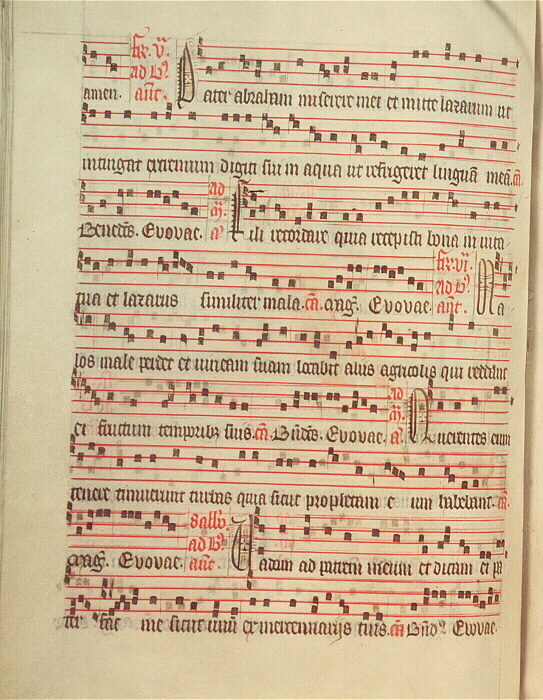 amen. fer. v. ad b' añt. Pater abraham miserere mei et mitte lazarum ut
intingat extremum digiti sui in aqua ut refrigeret linguā meā. cñ.
Benedc̄s. Evovae. ad m̄. a' Fili recordare quia recepisti bona in vita
tua et lazarus similiter mala. cñ. mag̃. Evovae. fer. vi. ad b'. añt. Ma
los male perdet et vineam suam locabit aliis agricolis qui reddunt
ei fructum temporibꝫ suis. cñ. Bñdc̄s. Evovae. ad m̄. a' Querentes eum
tenere timuerunt turbas quia sicut prophetam eum habebant. cñ.
mag̃. Evovae. Sabb'. ad b'. añt. Vadam ad patrem meum et dicam ei pa
ter fac me sicut unū ex mercennarijs tuis. cñ Bñd' Evovae.